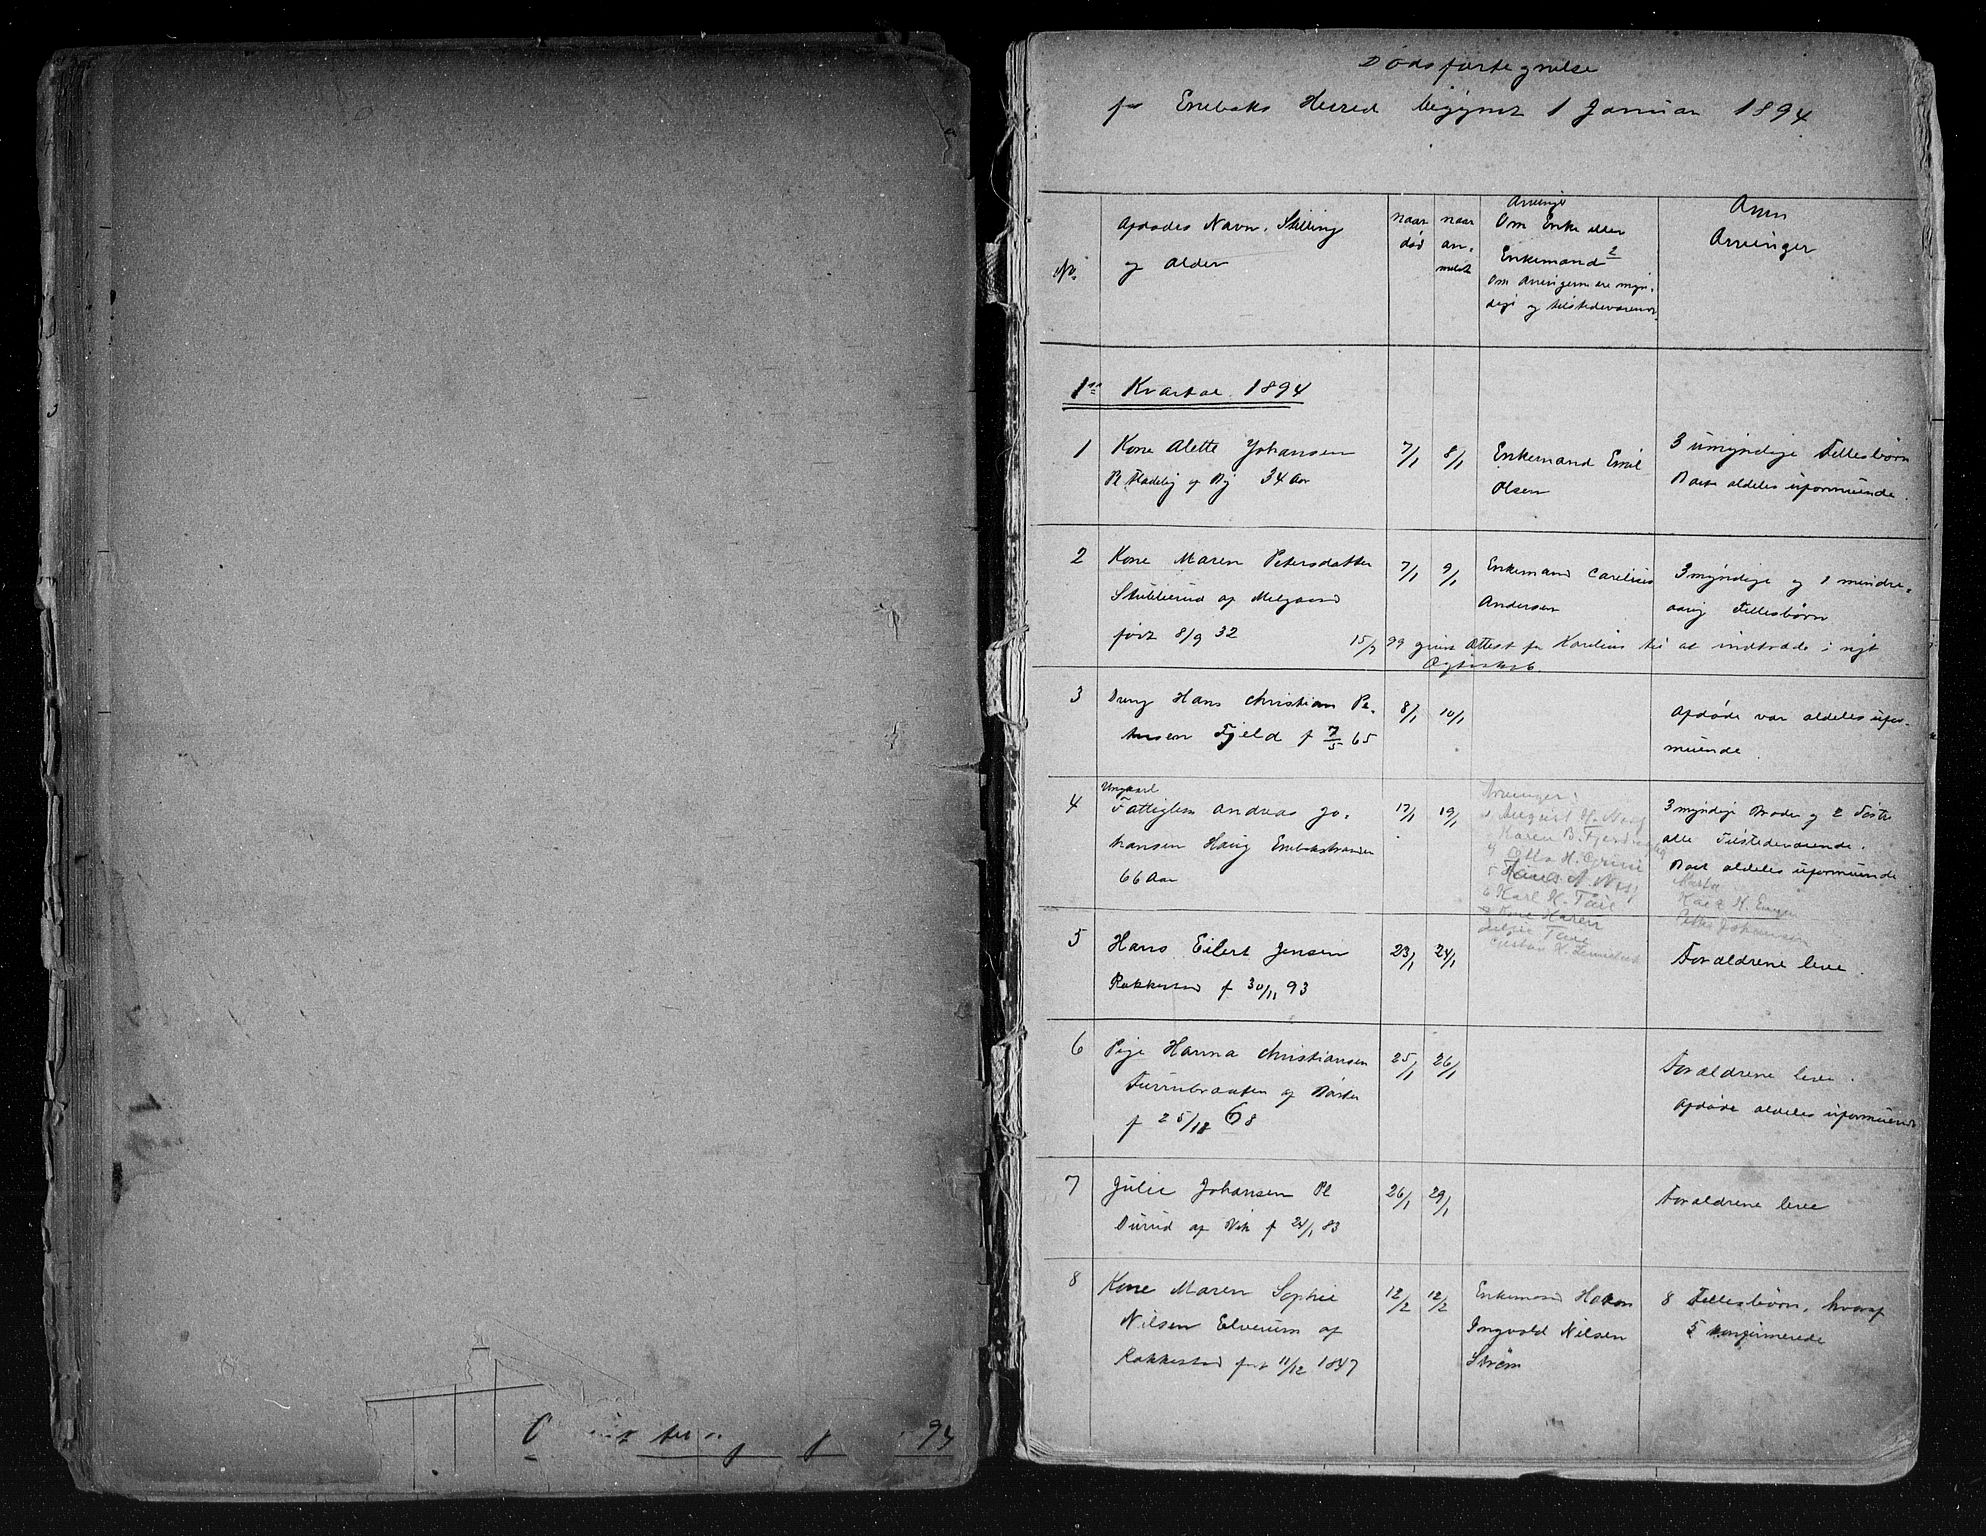 Dødsfortegnelse
for Enebaks Herred begynt 1 Januar 1894
No.
Afdødes Navn, Stilling
og Alder
naar
død
naar
an-
meldt
Arvinge
Om Enke eller
Enkemand
Om Arvingerne ere myn-
dige og tilstedeværende
Arvinger
1ste Kvartal 1894
1
Kone Alette Johansen
34 Aar
7/1
8/1
Enkemand Emil
Olsen
3 umyndige Fellesbørn
Boet aldeles uformuende.
2
Kone Maren Petersdatter
Stubberud af Melgaard
født 8/9 32
7/1
9/1
Enkemand Carelius
Andersen
3 myndige og 1 mindre-
aarig Fellesbørn
15/7 99 given Attest for Karelius til at indtræde i nyt
Ægteskab.
3
Dreng Hans Christian Pe-
tersen Fjeld f 7/5 65
8/1
10/1
Afdøde var aldeles ufor-
muende
4
Ungkarl
Fattiglem Andreas Jo-
hansen Haug Enebakstranden
66 Aar
17/1
19/1
Arvinger:
August H.
Karen B.
Otto H.
Karl H.
Kone Karen
Gustav K.
3 myndige Brødre og 2 Søstre
alle Tilstedeværende.
Boet aldeles uformuende.
Marta
H. Engen
Johansen
5
Hans Eilert Jensen
Rakkestad f 30/11 93
23/1
24/1
Forældrene leve.
6
Pige Hanna Christiansen
f 25/18 68
25/1
26/1
Forældrene leve.
Afdøde aldeles uformuende
7
Julie Johansen Pl
Durud af Vik f 24/1 83
26/1
29/1
Forældrene leve
8
Kone Maren Sophie
Nilsen Elverum af
Rakkestad født 11/12 1847
12/2
12/2
Enkemand Hakon
Ingvald Nilsen
Strøm
8 Fellesbørn, hvoraf
5 konfirmerede
94